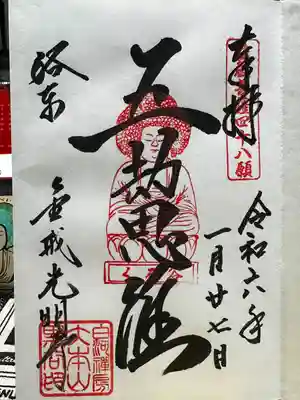 奉拝
四十八願
令和六年
一月廿七日
五劫思惟
洛東
金戒光明寺
白河禅房
大本山